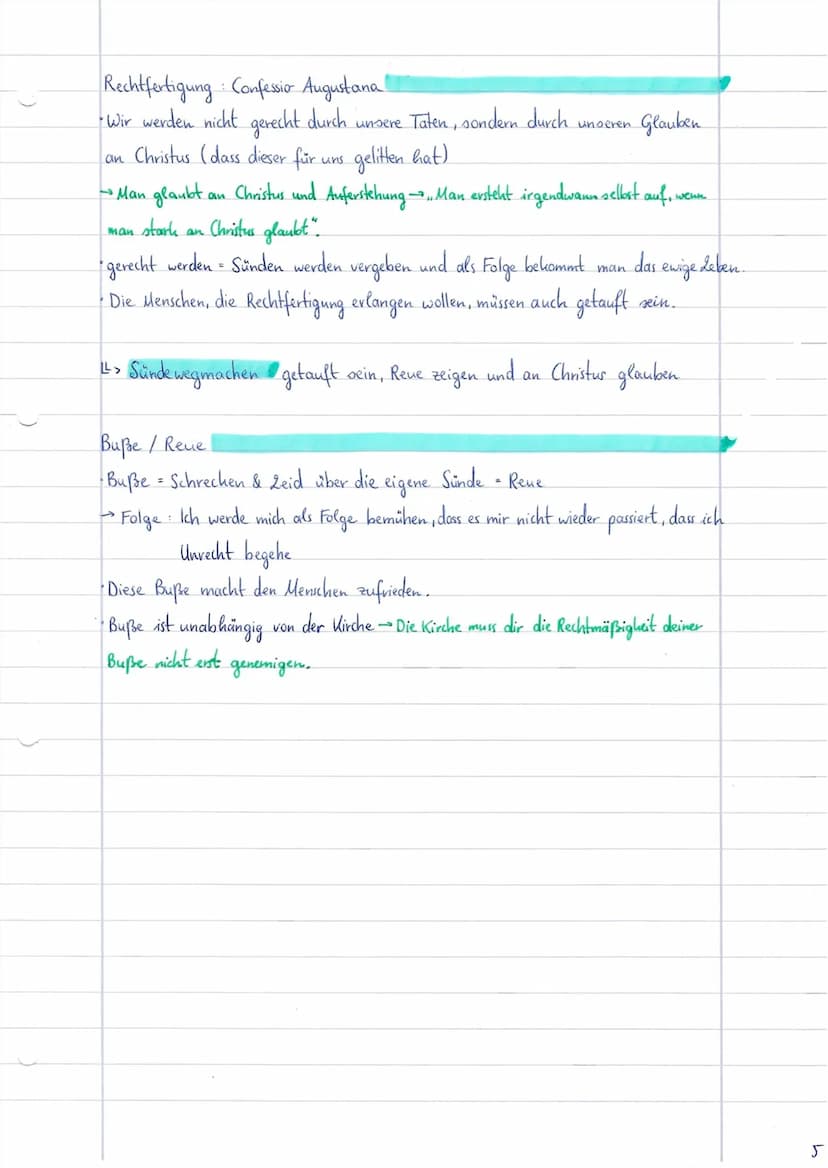 Rechtfertigung : Confessio Augustana
· Wir werden nicht gerecht durch unsere Taten, sondern durch unseren Glauben
an Christus (dass dieser für uns gelitten hat)
→ Man glaubt an Christus und Auferstehung → „Man ersteht irgendwann selbst auf, wenn
man stark an Christus glaubt“.
· gerecht werden = Sünden werden vergeben und als Folge bekommt man das ewige Leben.
· Die Menschen, die Rechtfertigung erlangen wollen, müssen auch getauft sein.
↳> Sünde wegmachen getauft sein, Reue zeigen und an Christus glauben
Buße / Reue
· Buße = Schrecken & Leid über die eigene Sünde = Reue
→ Folge : Ich werde mich als Folge bemühen, dass es mir nicht wieder passiert, dass ich
Unrecht begehe
· Diese Buße macht den Menschen zufrieden.
· Buße ist unabhängig von der Kirche → Die Kirche muss dir die Rechtmäßigkeit deiner
Buße nicht erst genemigen.
5